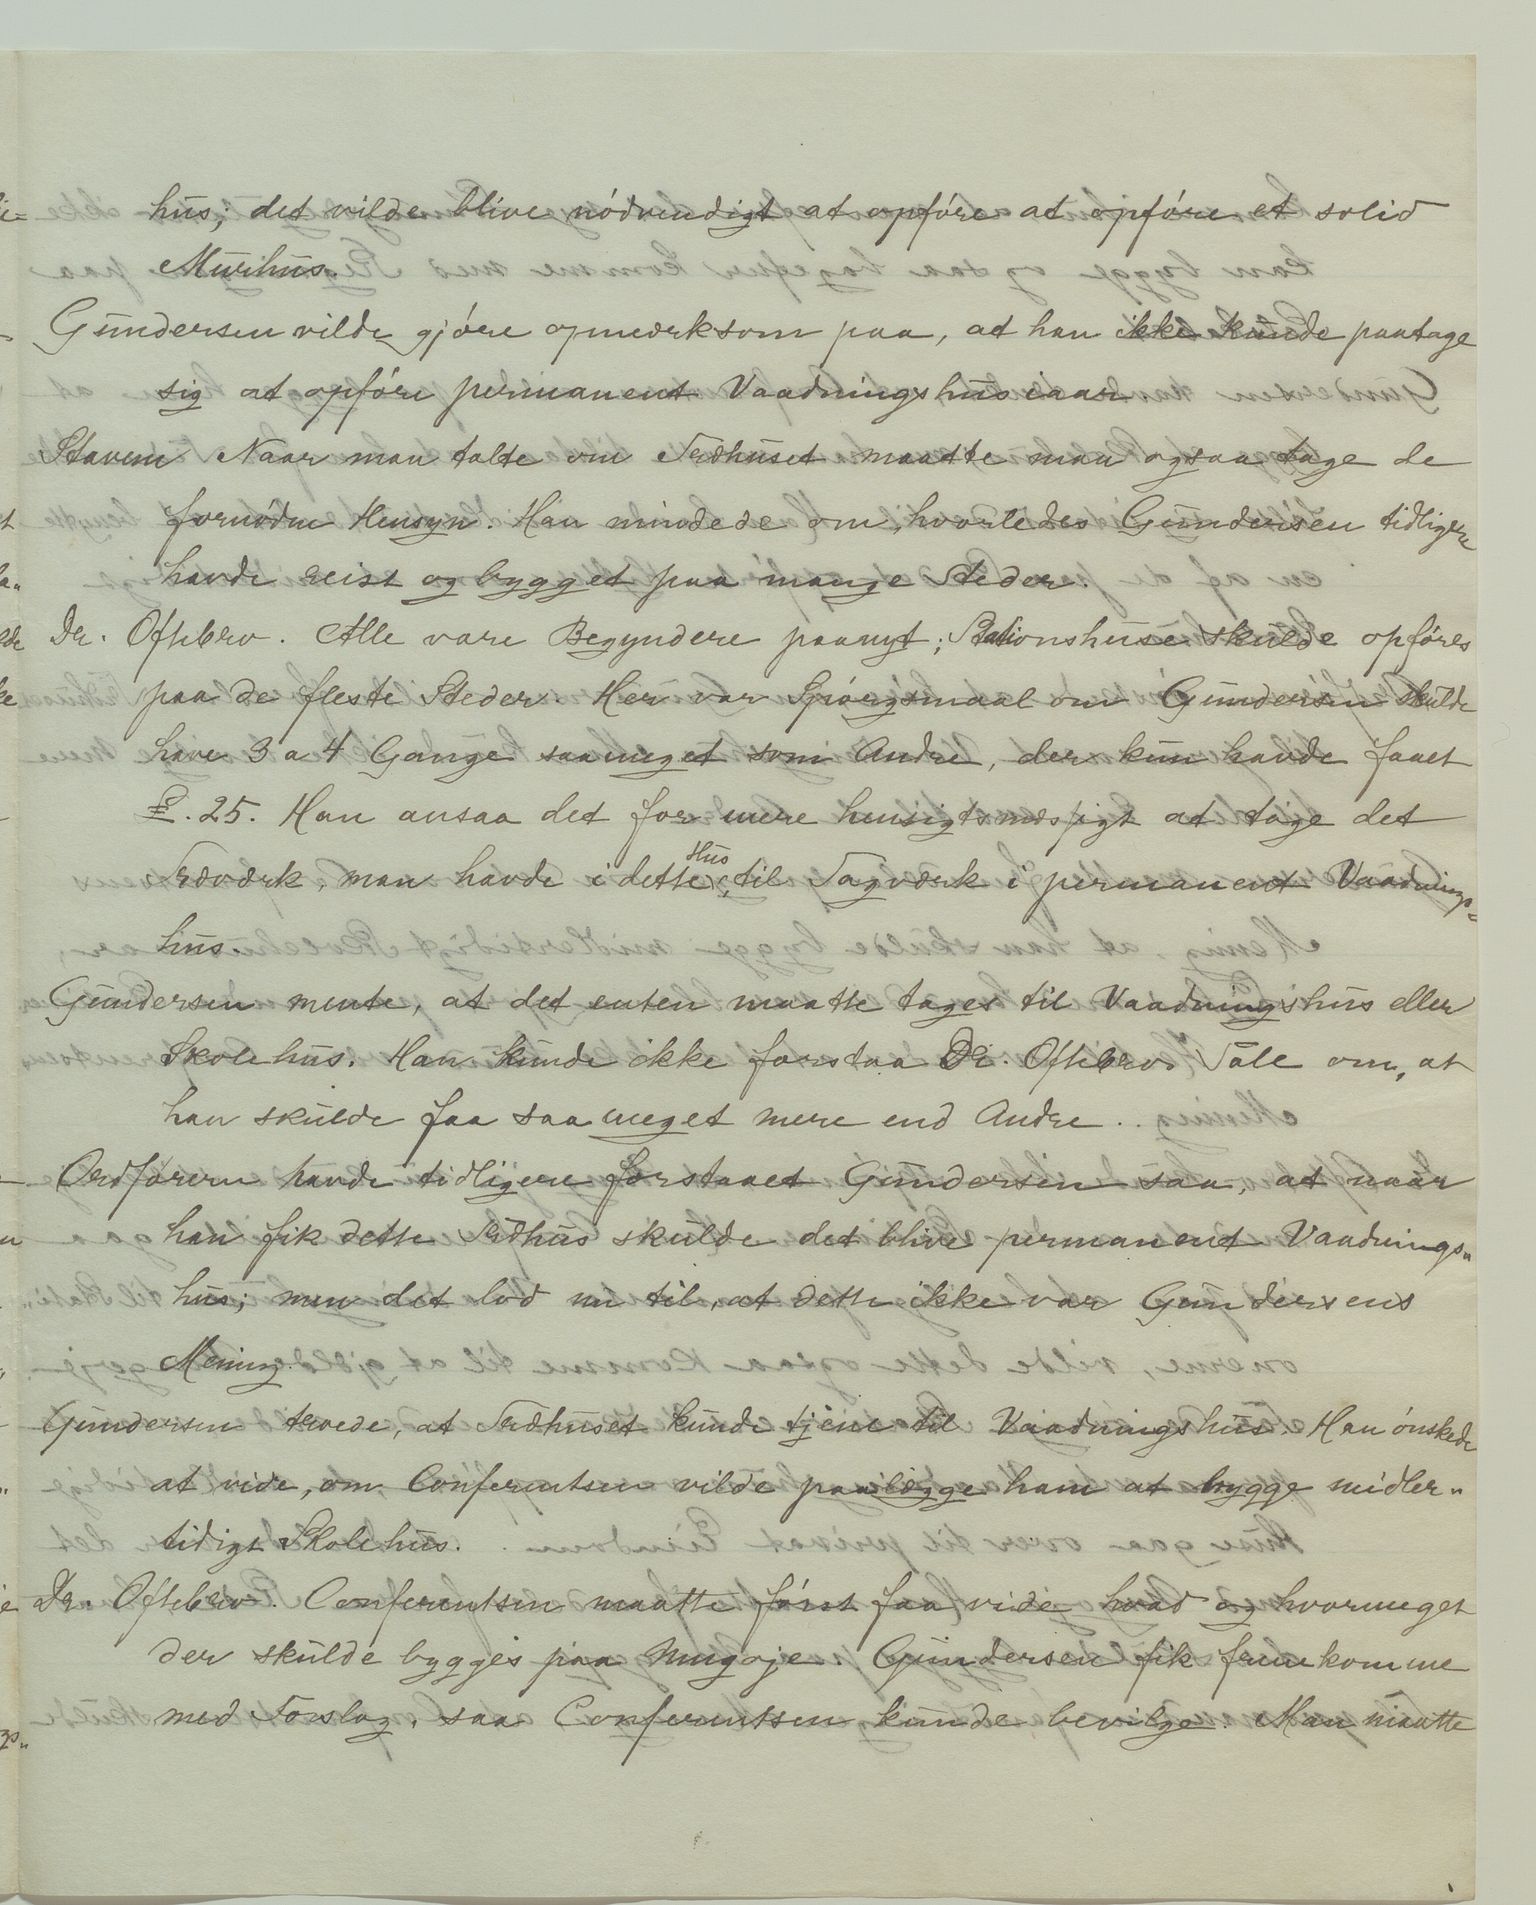 hus; det vilde blive nódvendigt at opfóre at opfóre et solid
Murhus.
Gundersen vilde gjóre opmærksom paa, at han ikke kunde paatage
sig at opfóre permanent Vaaningshus iaar
Stavem Naar man talte om Træhuset maatte man ogsaa tage de
fornódne Hensyn. Han mindede om, hvorledes Gundersen tidligere
havde reist og bygget paa mange Steder.
Dr. Oftebro. Alle vare Begyndere paanyt; Stationshuse skulde opfóres
paa de fleste Steder. Her var Spórgsmaal om Gundersen skulde
have 3 a 4 Gange saameget som Andre, der kun havde faaet
£. 25. Han ansaa det for mere hensigtsmæssigt at tage det
Træværk, man havde i dette Hus, til Tagværk i permanent Vaanings-
hus.
Gundersen mente, at det enten maatte tages til Vaaningshus eller
Skolehus. Han kunde ikke forstaa Dr. Oftebros Tale om, at
han skulde faa saa meget mere end Andre..
Ordfóreren havde tidligere forstaaet Gundersen saa, at naar
han fik dette Træhus skulde det blive permanent Vaanings„
hus; men det lod nu til, at dette ikke var Gundersens
Mening.
Gundersen troede, at Træhuset kunde tjene til Vaaningshus. Han ónskede
at vide, om Conferentsen vilde paalægge ham at bygge midler„
tidigt Skolehus.
Dr. Oftebro. Conferentsen maatte fórst faa vide hvad og hvormeget
der skulde bygges paa Mugoje. Gundersen fik fremkomme
med Forslag, saa Conferentsen kunde bevilge. Man maatte